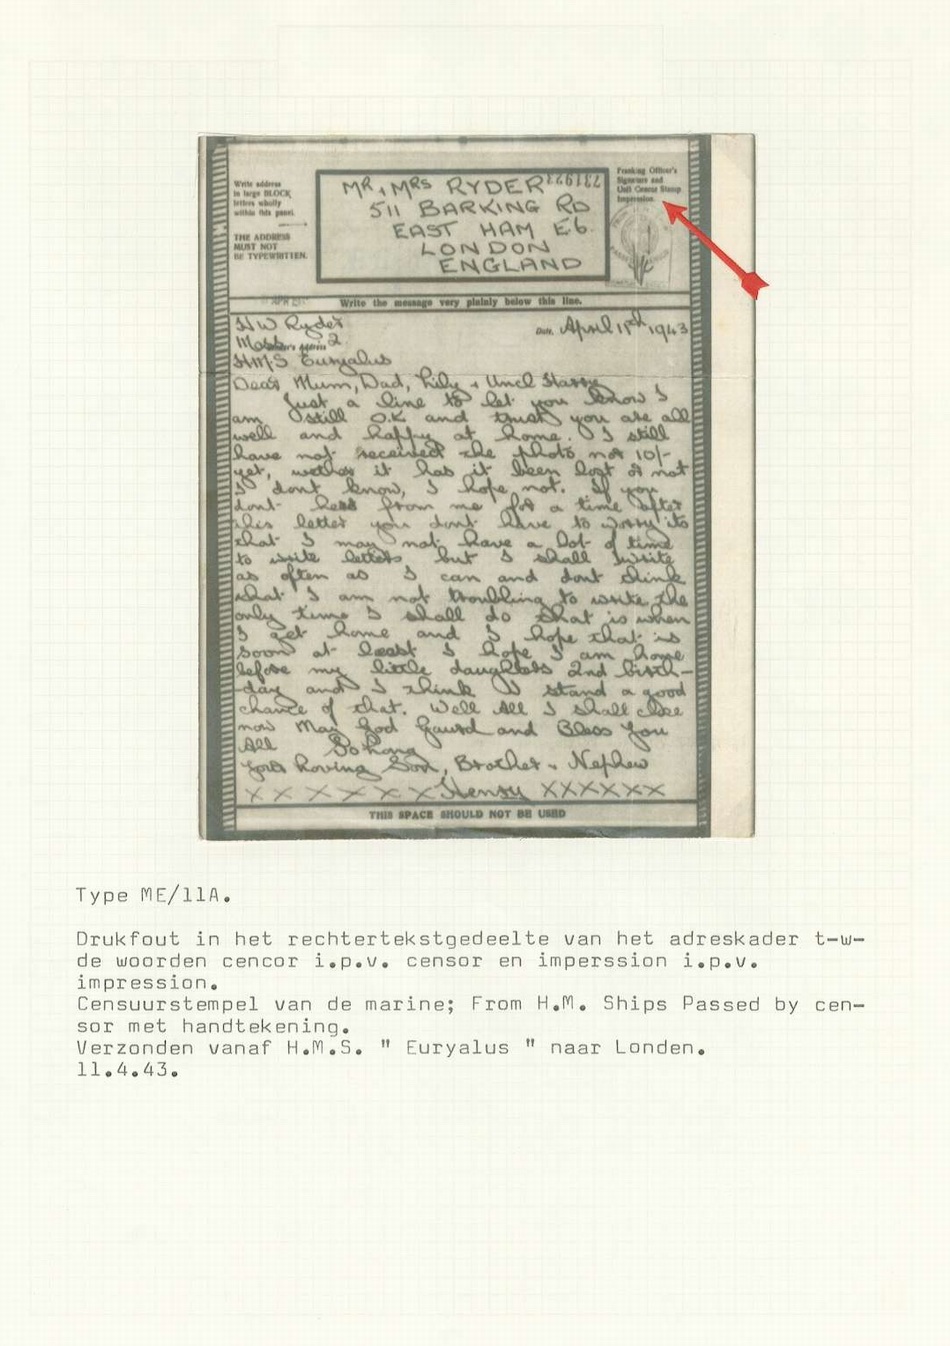 Write address
in large BLOCK
letters wholly
within this panel.
THE ADDRESS
MUST NOT
BE TYPEWRITTEN.
MR & MRS RYDER
511 BARKING RD
EAST HAM E6.
LONDON
ENGLAND
731923
Franking Officer's
Signature and
Unit Cencor Stamp
Imperssion.
Write the message very plainly below this line.
H W Ryder
Mess 2
H.M.S Euryalus
Date. April 11th 1943
Dear Mum, Dad, Lily & Uncl Harry
Just a line to let you know I
am still O.K and trust you are all
well and happy at home. I still
have not received the photo nor 10/-
yet, wether it has it been lost or not
I dont know, I hope not. If you
dont hear from me for a time after
this letter you dont have to worry its
that I may not have a lot of time
to write letters but I shall write
as often as I can and dont think
that I am not troubling to write the
only time I shall do that is when
I get home and I hope that is
soon at least I hope I am home
before my little daughters 2nd birth-
-day and I think I stand a good
chance of that. Well All I shall close
now May God Gaurd and Bless You
All So Long
Your Loving Son, Brother & Nephew
X X X X X X X Henry XXXXXX
THIS SPACE SHOULD NOT BE USED
Type ME/11A.
Drukfout in het rechtertekstgedeelte van het adreskader t-w-
de woorden cencor i.p.v. censor en imperssion i.p.v.
impression.
Censuurstempel van de marine; From H.M. Ships Passed by cen-
sor met handtekening.
Verzonden vanaf H.M.S. " Euryalus " naar Londen.
11.4.43.